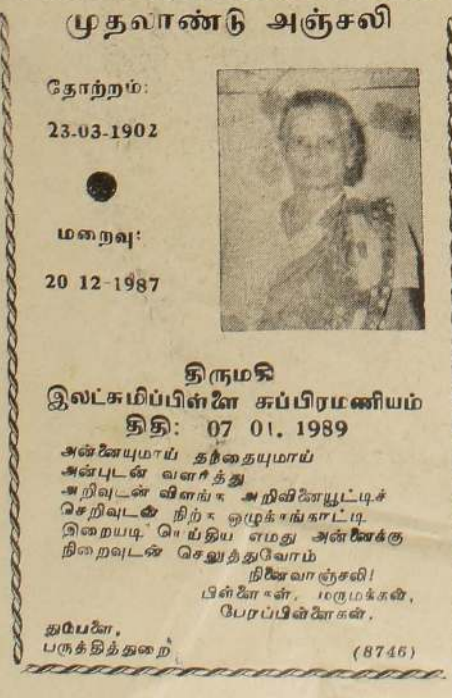 முதலாண்டு அஞ்சலி
தோற்றம்:
23-03-1902
மறைவு:
20 12-1987
திருமதி
இலட்சுமிப்பிள்ளை சுப்பிரமணியம்
திதி: 07 01. 1989
அன்னையுமாய் தந்தையுமாய்
அன்புடன் வளர்த்து
அறிவுடன் விளங்க அறிவினையூட்டிச்
செறிவுடன் நிற்க ஒழுக்கங்காட்டி
இறையடி எமது அன்னைக்கு
நிறைவுடன் செலுத்துவோம்
நினைவாஞ்சலி!
பிள்ளைகள், மருமக்கள்,
பேரப்பிள்ளைகள்.
தும்பளை,
பருத்தித்துறை
(8746)